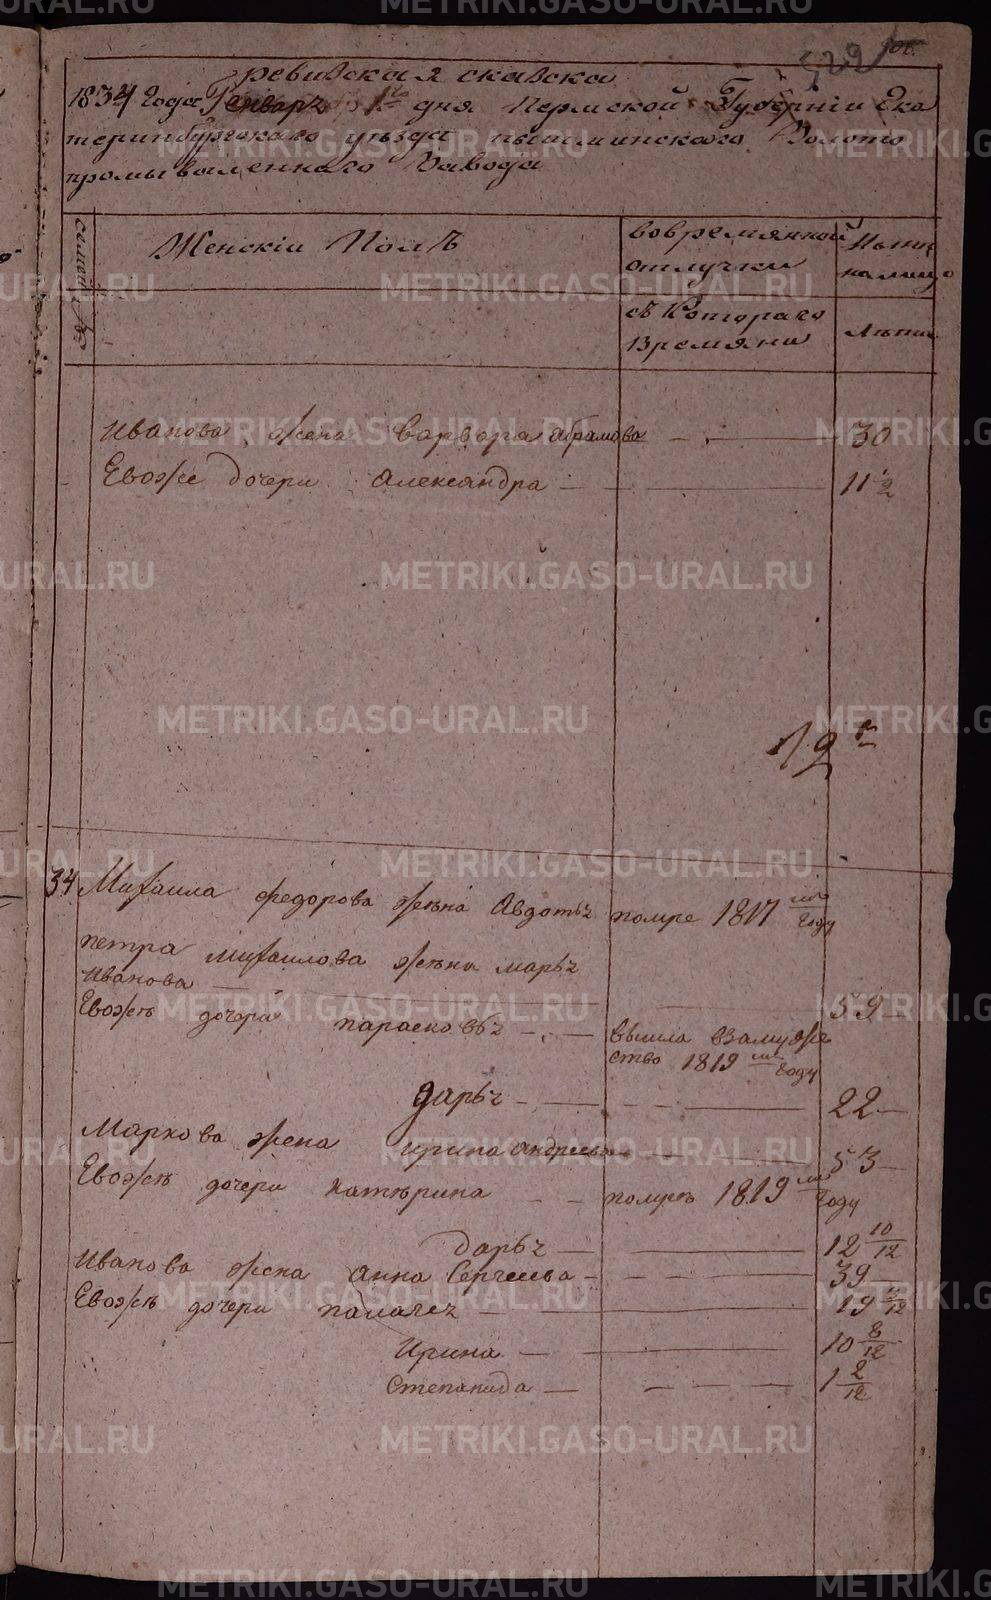 529
ревизская сказка
1834 года Генваря 1 дня Пермской Губернии Ека
теринбургскаго уезда пышминскаго Золото
промываленнаго Завода
Женскiи Полъ
вовремянной отлучки
Ныне налицо
съ Котораго Времяни
Лета
Иванова жена Варвара абрамова — 30
Евоже дочери Александра — 11 1/2
34 Михаила федорова жена Авдотья помре 1817 году
петра михаилова жена марья
иванова — 59
Евожъ дочери парасковья — вышла взамуже
ство 1819 году
дарья — 22
Маркова жена ирина андреева — 53
Евожъ дочери катерина — помре 1819 году
дарья — 12 10/12
Иванова жена Анна Сергеева — 39
Евожъ дочери палагея — 19 /12
Ирина — 10 8/12
Степанида — 1 2/12
METRIKI.GASO-URAL.RU